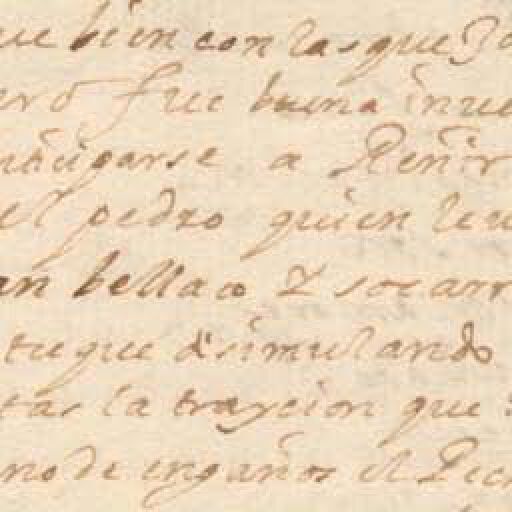 ue bien con las que Jo
ero fue buena inue
anticiparse a Reñir
el pedro quien le u
an bellaco y socarr
tu que disimulando
tas la traycion que
no de engaños el Pech